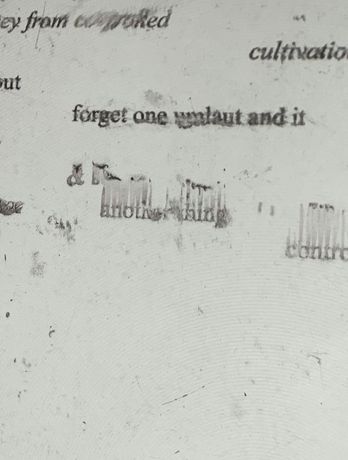 ey from controlled
cultivatio
out
forget one umlaut and it
&
another thing
contro